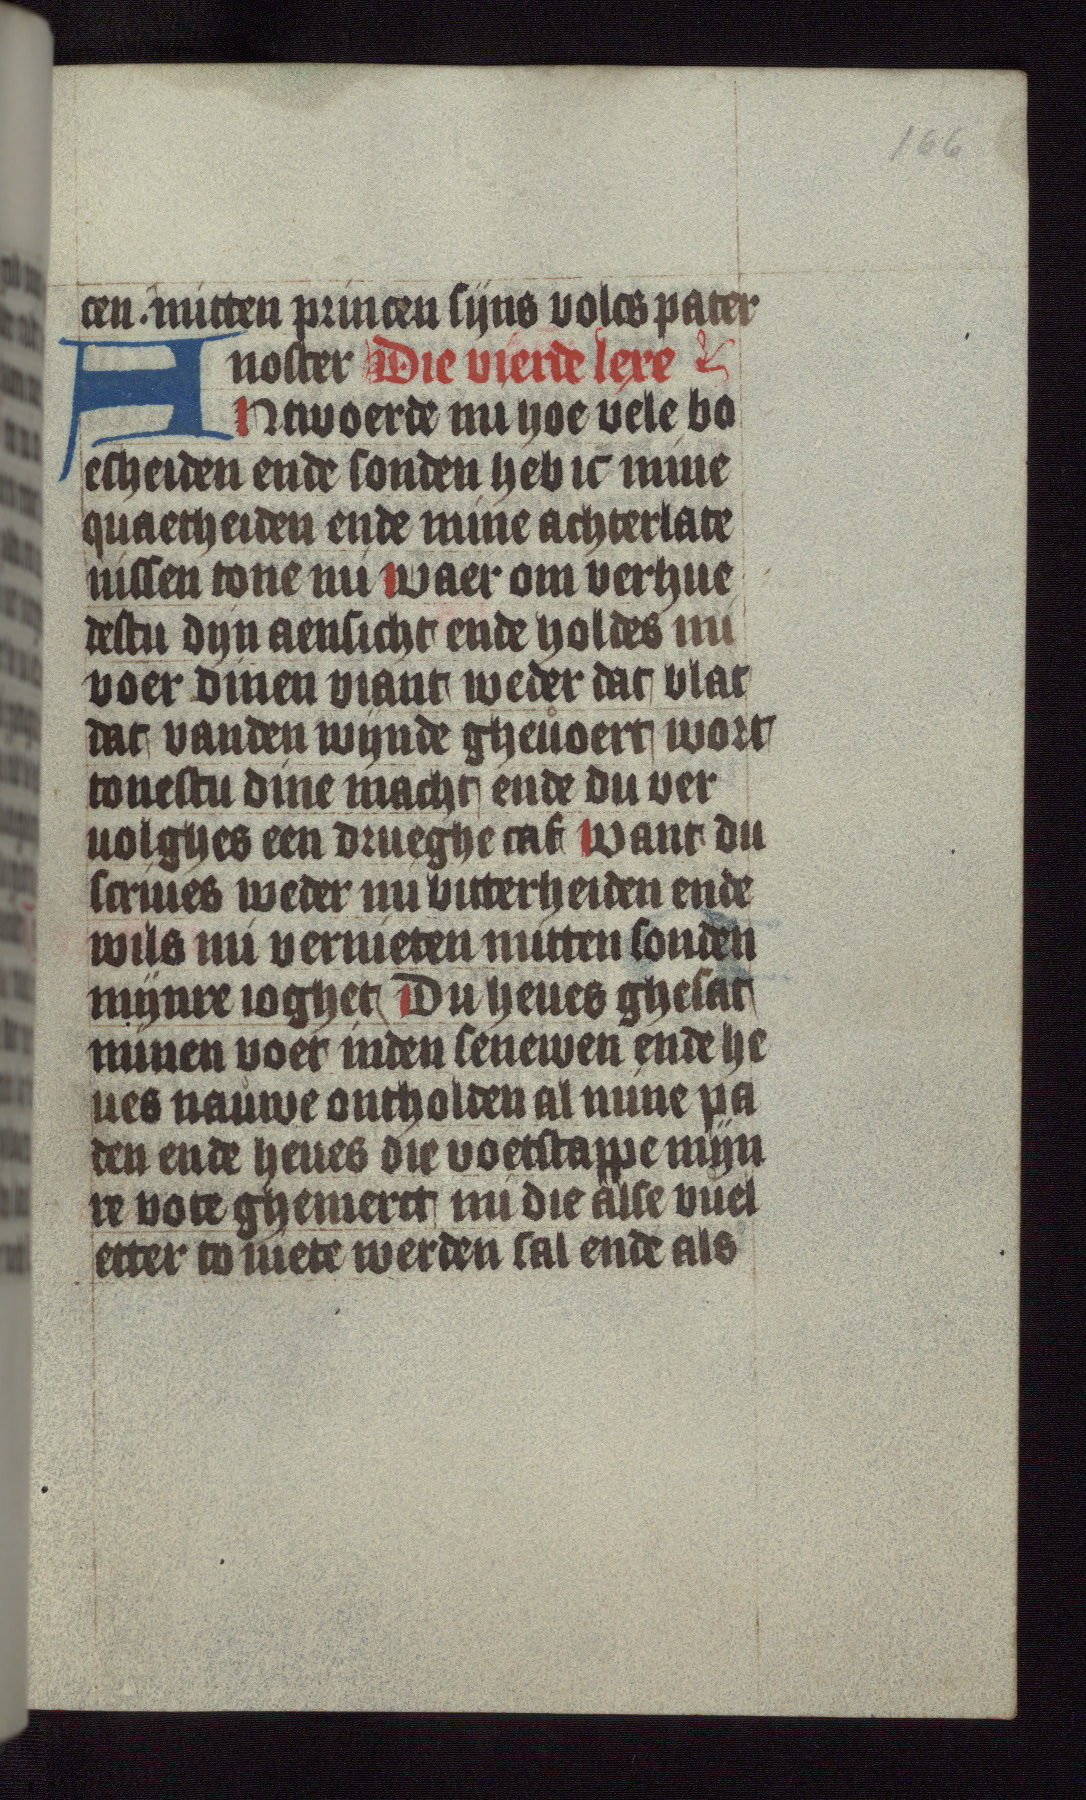 166
cen. mitten princen sijns volcs pater
noster Die vierde lere
Antwoerde mi hoe vele bo
escheiden ende sonden heb ic mine
quaetheiden ende mine achterlate
nissen tone mi Waer om verhue
destu dijn aensicht ende holdes mi
voer dinen viant weder dat blat
dat vanden wijnde ghevoert wort
tonestu dine macht ende du ver
volghes een drueghe caf Want du
scrives weder mi bitterheiden ende
wils mi vernieten mitten sonden
mijnre ioghet Du heves ghesat
minen voet inden senewen ende he
ves nauwe ontholden al mine pa
den ende heves die voetstappe mijn
re vote ghemerct mi die alse vuel
etter to niete werden sal ende als